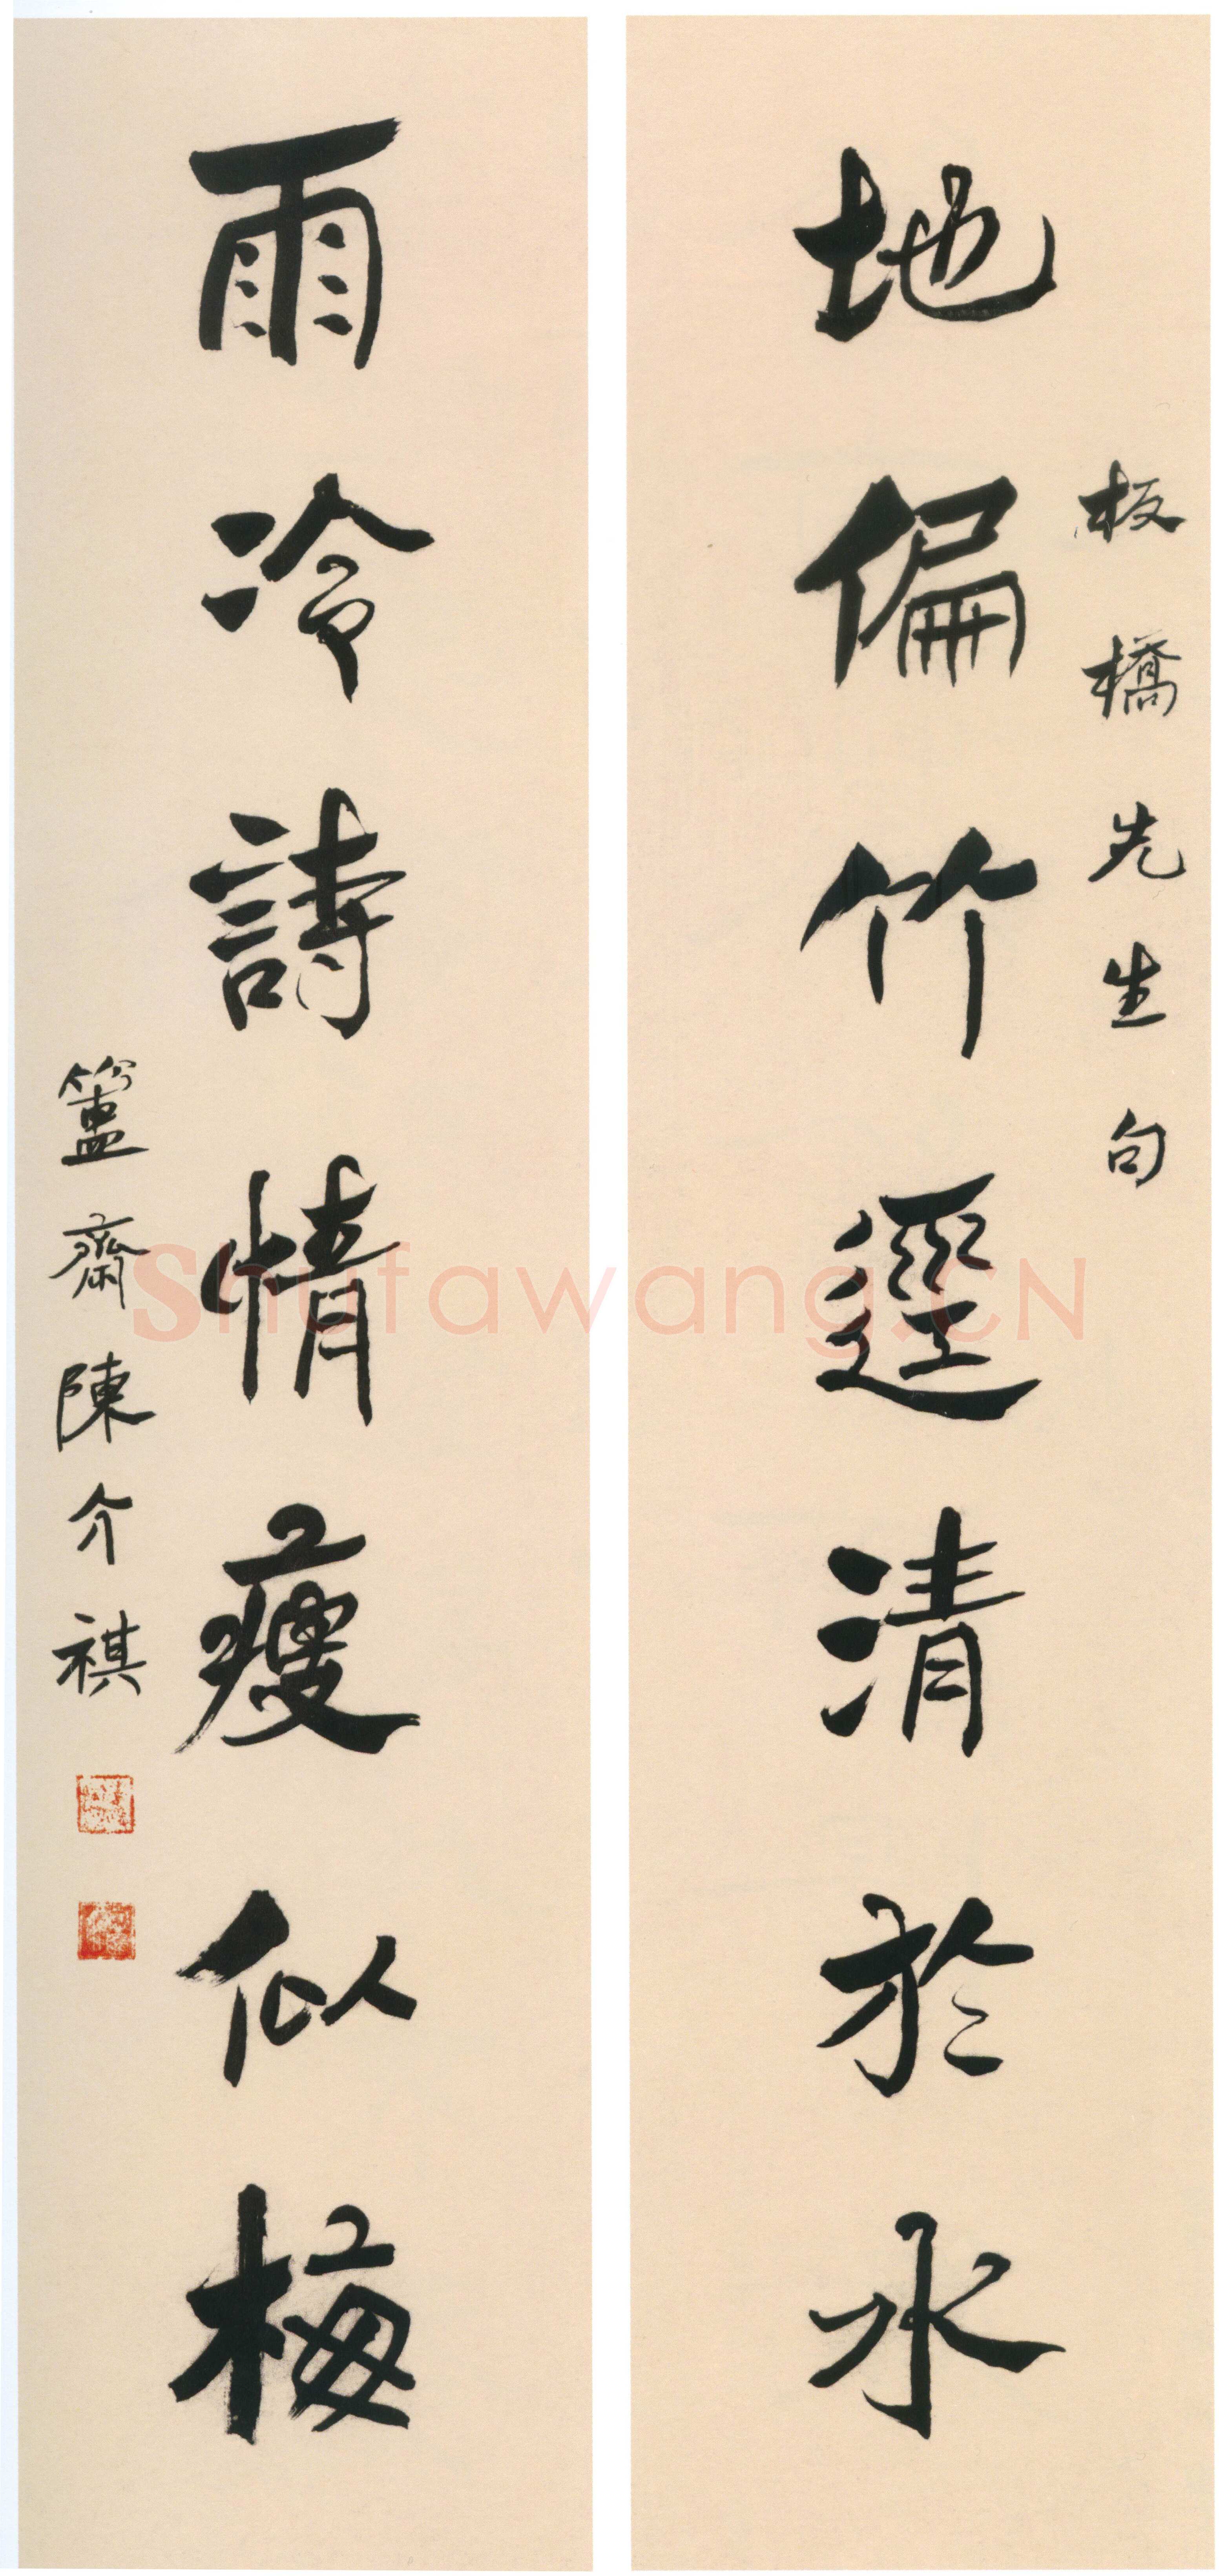 板橋先生句
地偏竹逕清於水
雨冷詩情瘦似梅
簠齋陳介祺
Shufawang.CN